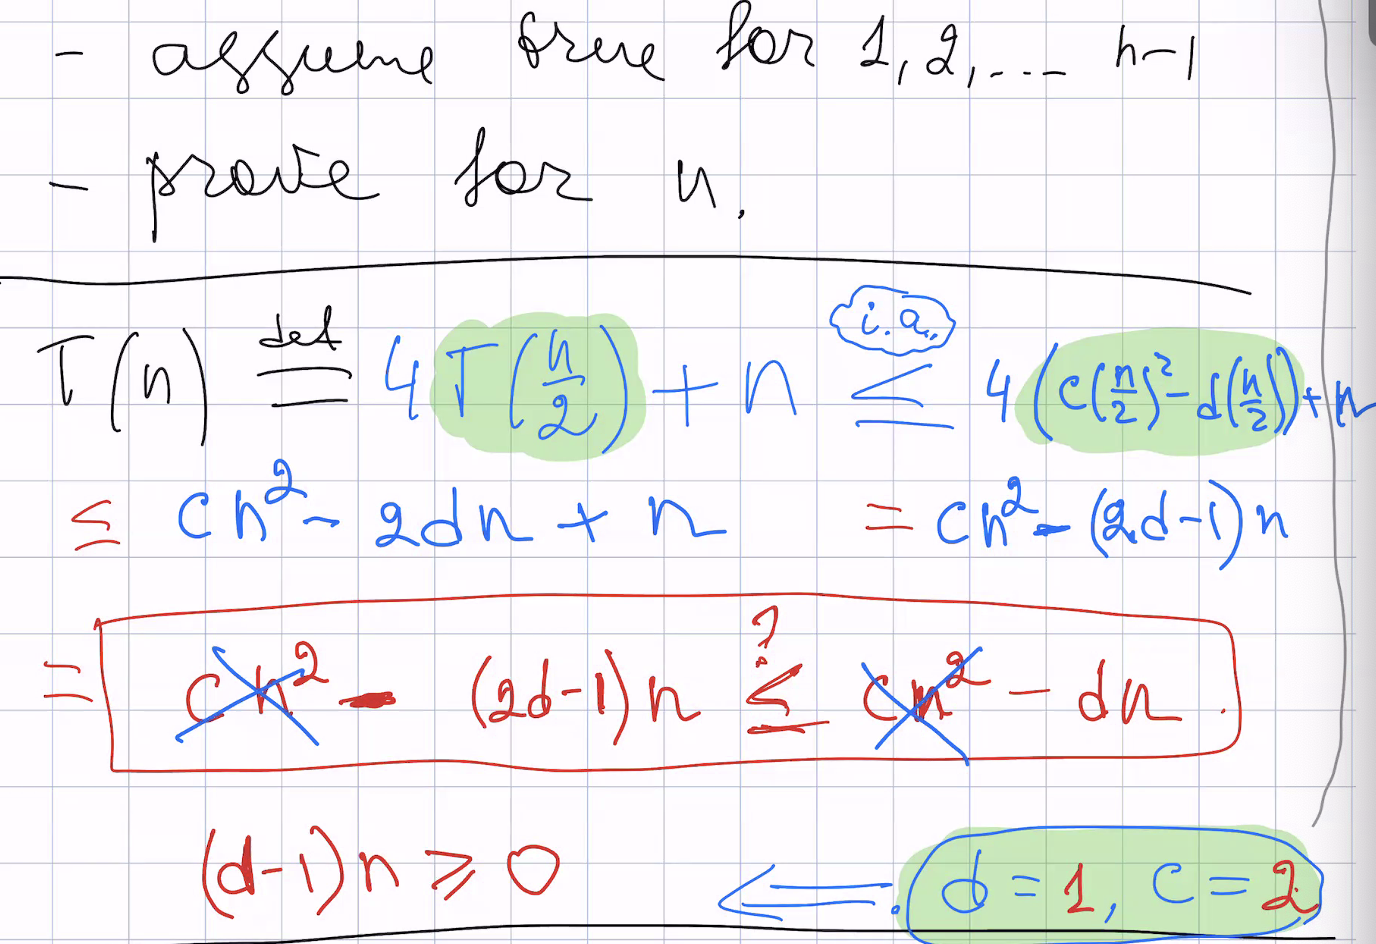 - assume true for 1, 2, ... n-1
- prove for n.
T(n) def= 4T(n/2) + n i.a. ≤ 4(c(n/2)² - d(n/2)) + n
≤ cn² - 2dn + n = cn² - (2d-1)n
= cn² - (2d-1)n ?≤ cn² - dn.
(d-1)n ⩾ 0 ⟸ d = 1, c = 2